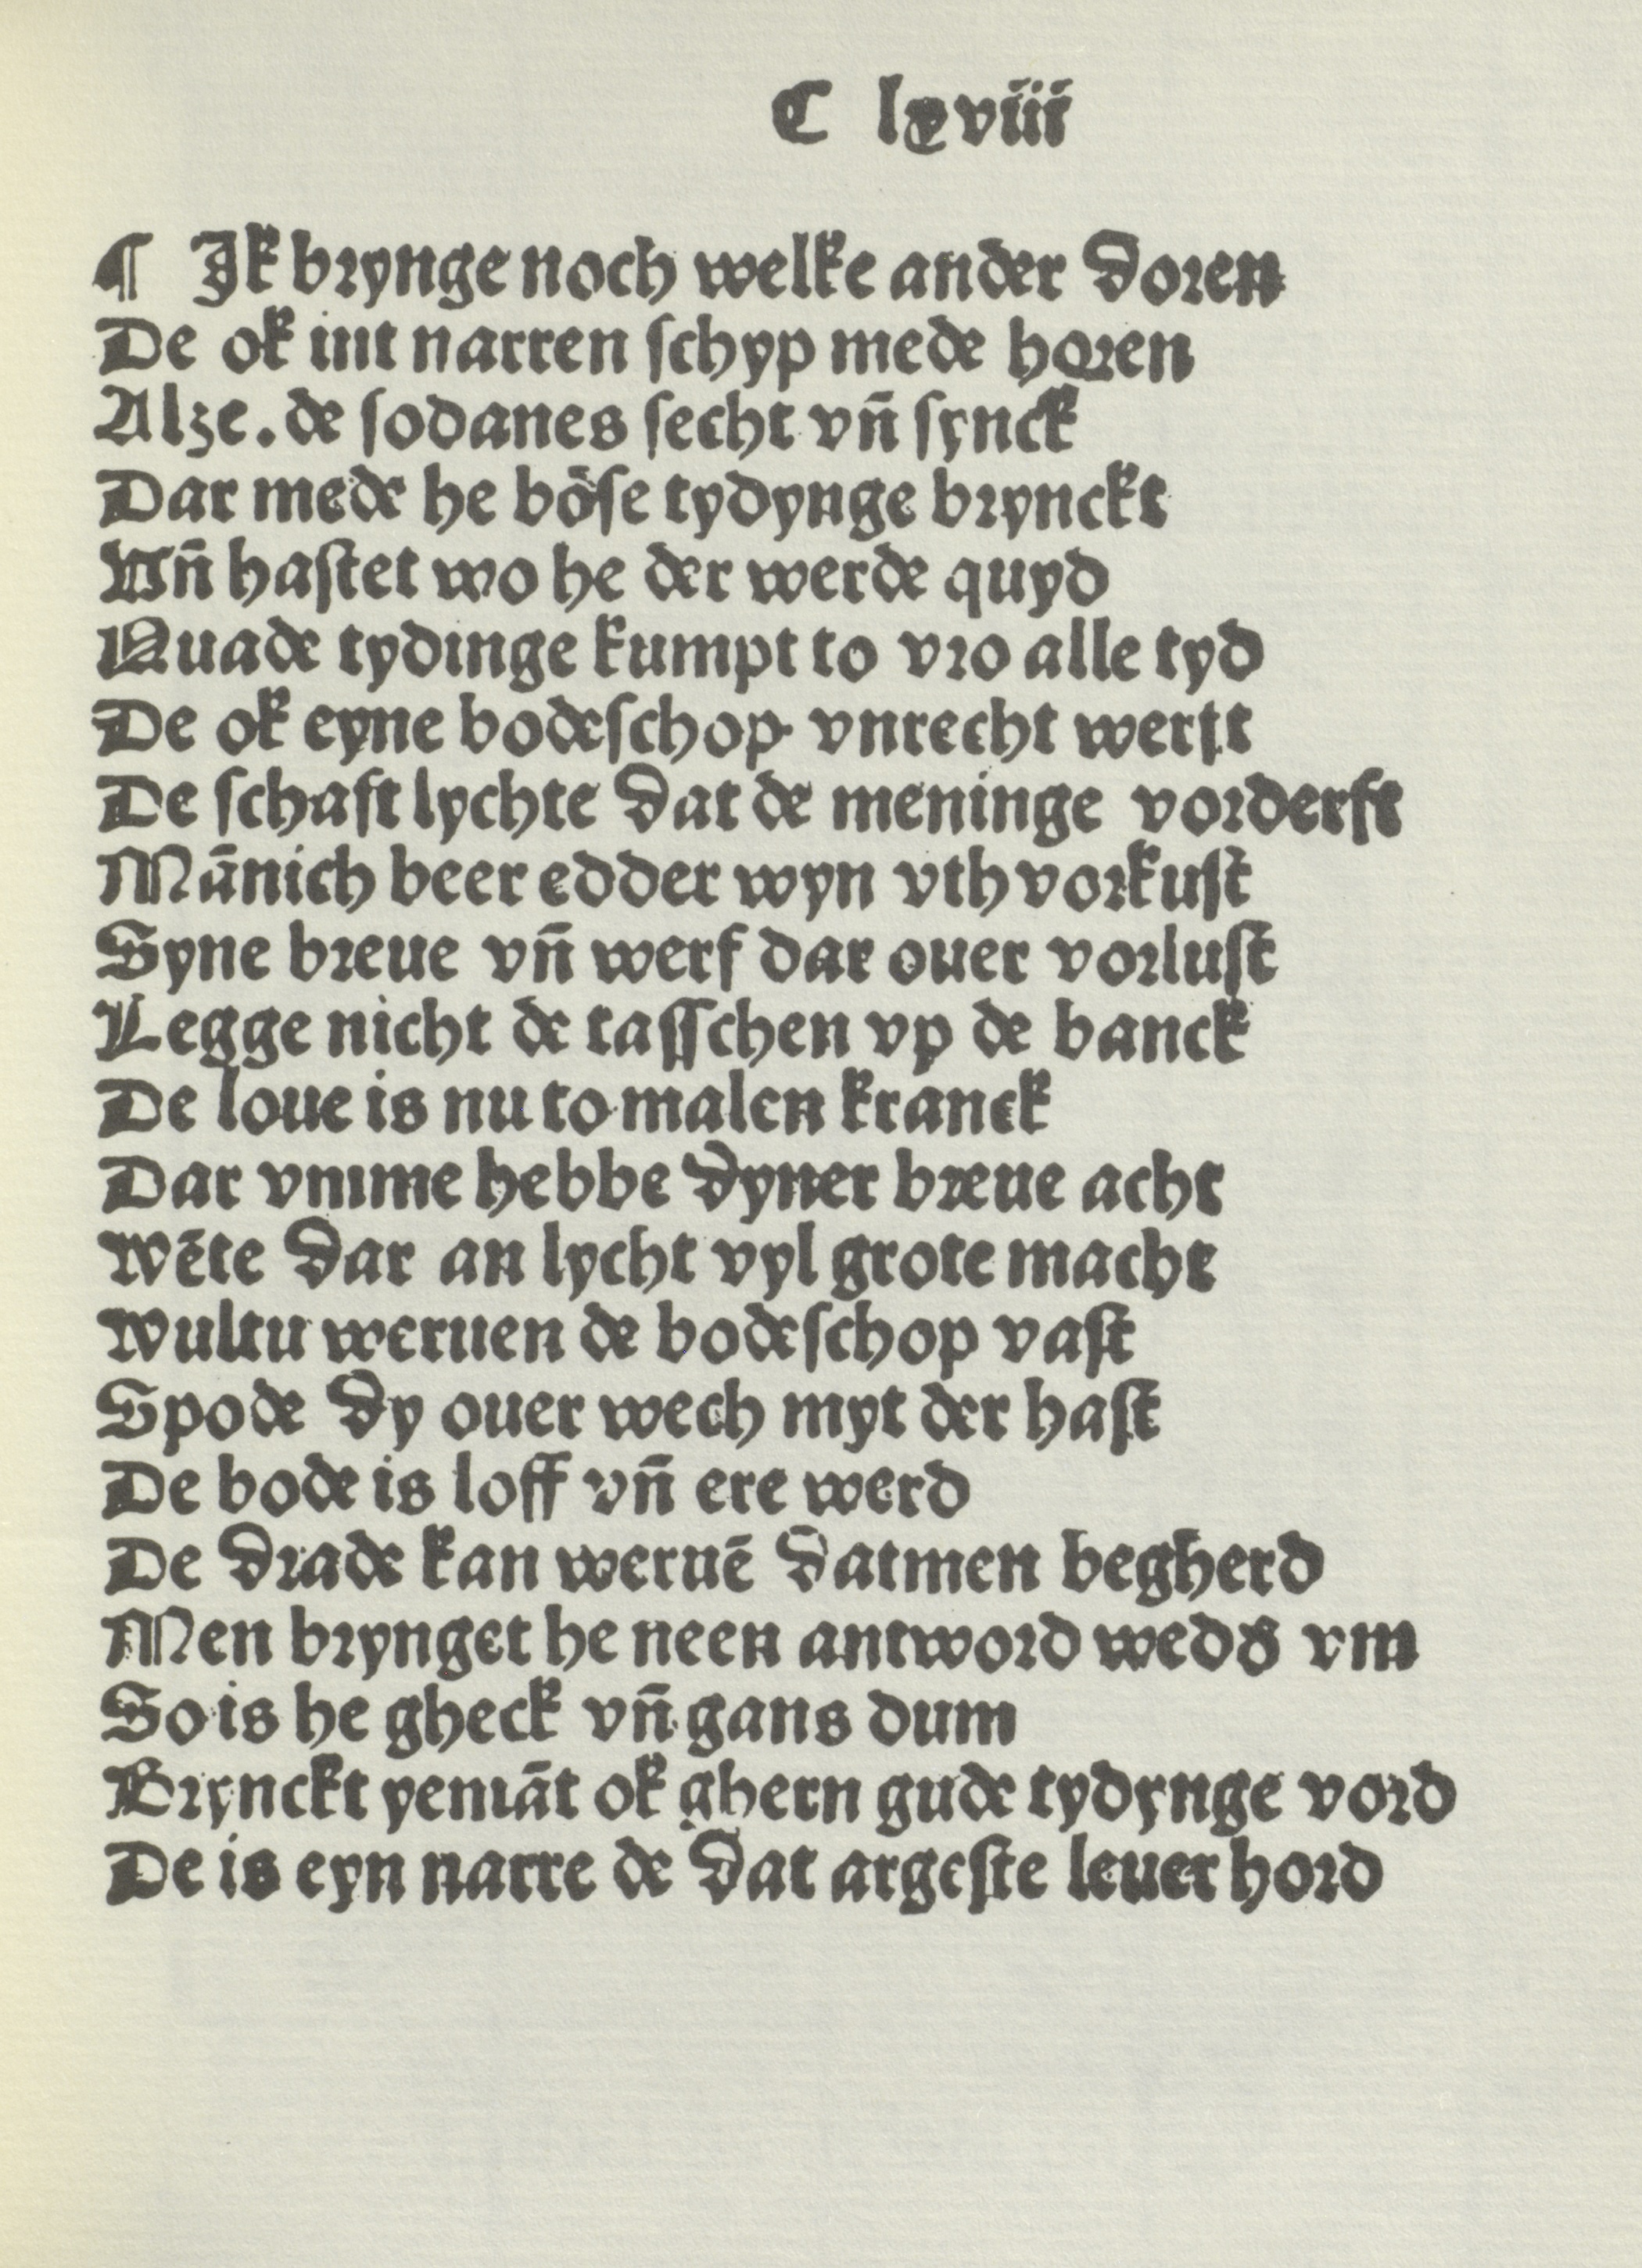 C lxviii
¶ Ik brynge noch welke ander doren
De ok int narren ſchyp mede horen
Alze. de ſodanes ſecht vn̄ ſynck
Dar mede he böſe tydynge brynckt
Vn̄ haſtet wo he der werde quyd
Quade tydinge kumpt to vro alle tyd
De ok eyne bodeſchop vnrecht werft
De ſchaft lychte dat de meninge vorderft
Mānich beer edder wyn vth vorkuſt
Syne breue vn̄ werf dar ouer vorluſt
Legge nicht de taſſchen vp de banck
De loue is nu to malen kranck
Dar vmme hebbe dyner breue acht
Wēte dar an lycht vyl grote macht
Wultu weruen de bodeſchop vaſt
Spode dy ouer wech myt der haſt
De bode is loff vn̄ ere werd
De drade kan weruē datmen begherd
Men brynget he neen antword wedd̕ vm
So is he gheck vn̄ gans dum
Brynckt yemāt ok ghern gude tydynge vord
De is eyn narre de dat argeſte leuer hord